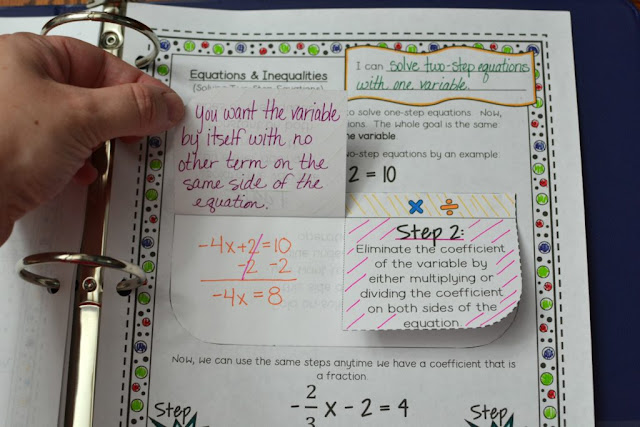 Equations & Inequalities
I can solve two-step equations
with one variable.
to solve one-step equations. Now,
The whole goal is the same:
the variable
two-step equations by an example:
2 = 10
You want the variable
by itself with no
other term on the
same side of the
equation.
-4x+2=10
-2 -2
-4x = 8
× ÷
Step 2:
Eliminate the coefficient
of the variable by
either multiplying or
dividing the coefficient
on both sides of the
equation.
Now, we can use the same steps anytime we have a coefficient that is
a fraction.
-2/3 x - 2 = 4
Step
Step